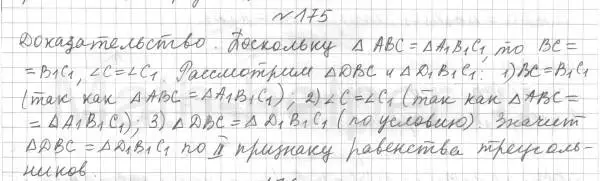 № 175
Доказательство. Поскольку △ ABC = △A₁B₁C₁, то BC =
= B₁C₁, ∠C = ∠C₁. Рассмотрим △DBC и △D₁B₁C₁: 1) BC = B₁C₁
(так как △ABC = △A₁B₁C₁); 2) ∠C = ∠C₁ (так как △ABC =
= △A₁B₁C₁); 3) △DBC = △D₁B₁C₁ (по условию). Значит
△DBC = △D₁B₁C₁ по II признаку равенства треуголь-
ников.